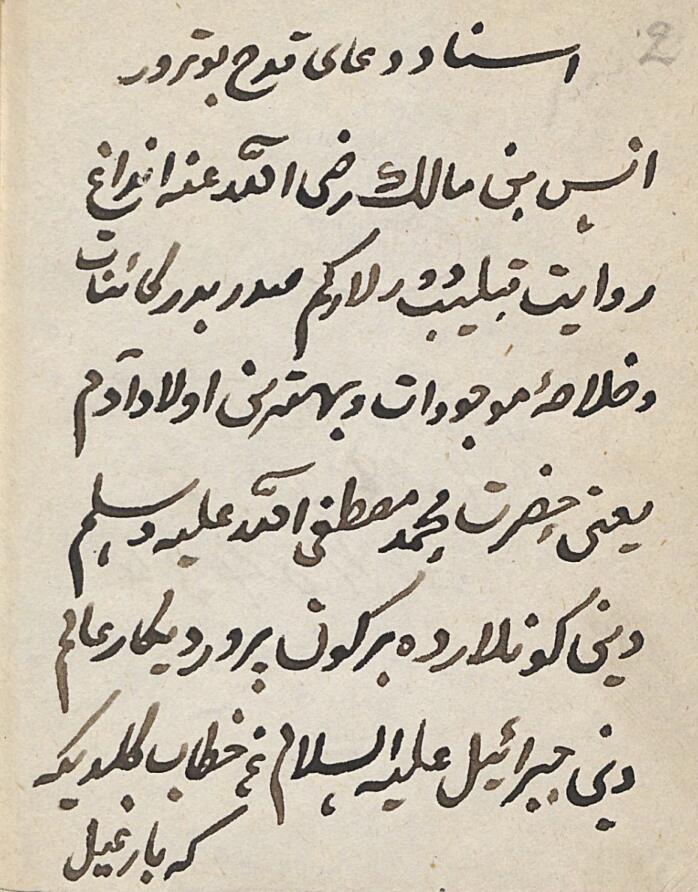 2
اسناد دعای قدح بو ترور
انس بن مالک رضی الله عنه انداغ
روایت قیلیب دورلارکم صدر بدر کائنات
و خلاصهٔ موجودات و بهترین اولاد آدم
یعنی حضرت محمد مصطفی الله علیه وسلم
دین کونلارده بر کون پروردیکار عالم
دین جبرائیل علیه السلام غه خطاب کلدیکه
که بارغیل